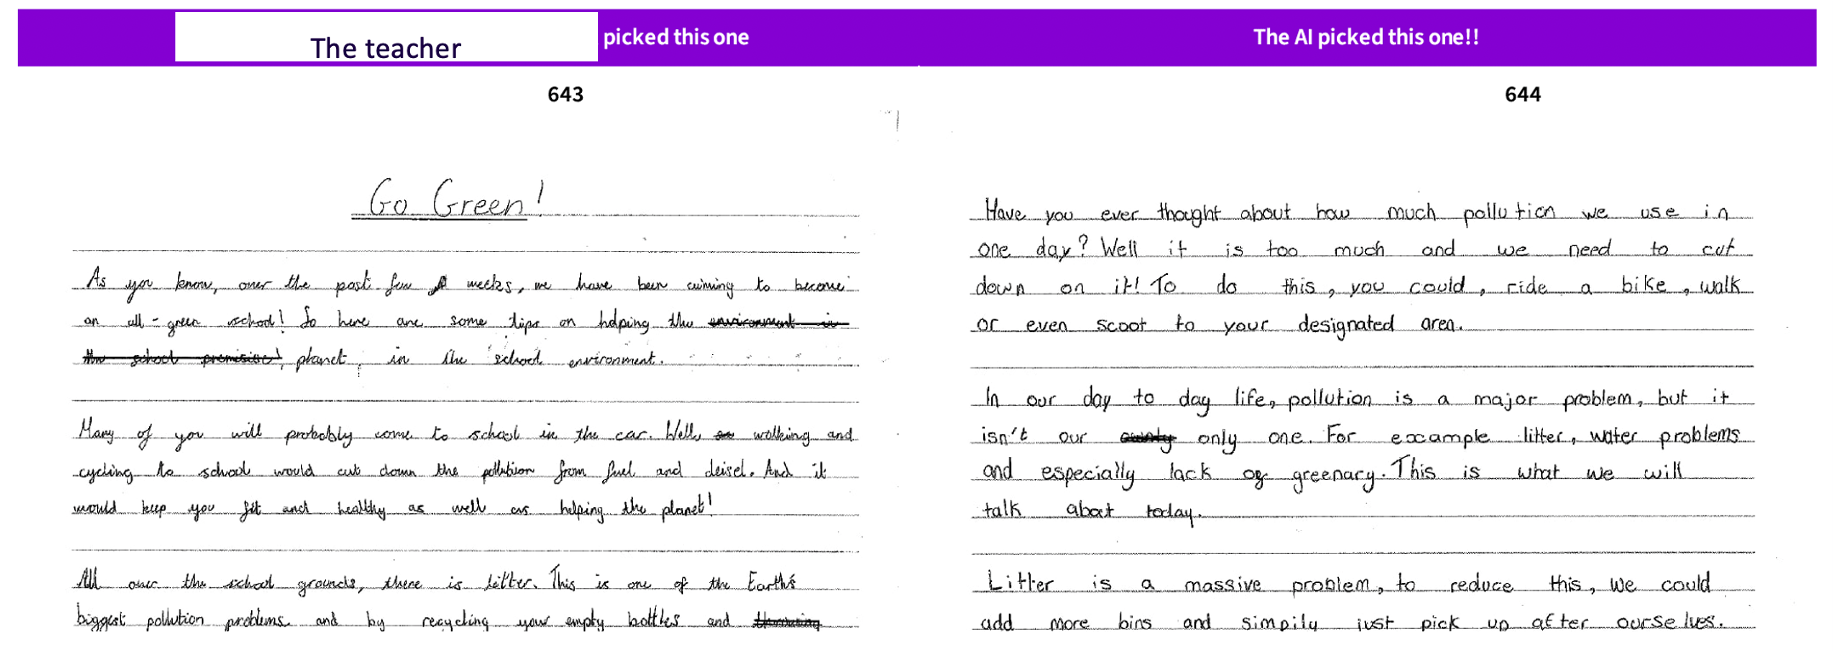 The teacher picked this one
643
Go Green!
As you know, over the past few weeks, we have been aiming to become
an all-green school! So here are some tips on helping the environment in
the school premisise! planet, in the school environment.
Many of you will probably come to school in the car. Well, walking and
cycling to school would cut down the pollution from fuel and deisel. And it
would keep you fit and healthy as well as helping the planet!
All over the school grounds, there is litter. This is one of the Earth's
biggest pollution problems and by recycling your empty bottles and
The AI picked this one!!
644
Have you ever thought about how much pollution we use in
one day? Well it is too much and we need to cut
down on it! To do this, you could, ride a bike, walk
or even scoot to your designated area.
In our day to day life, pollution is a major problem, but it
isn't our only one. For example litter, water problems
and especially lack of greenary. This is what we will
talk about today.
Litter is a massive problem, to reduce this, we could
add more bins and simpily just pick up after ourselves.